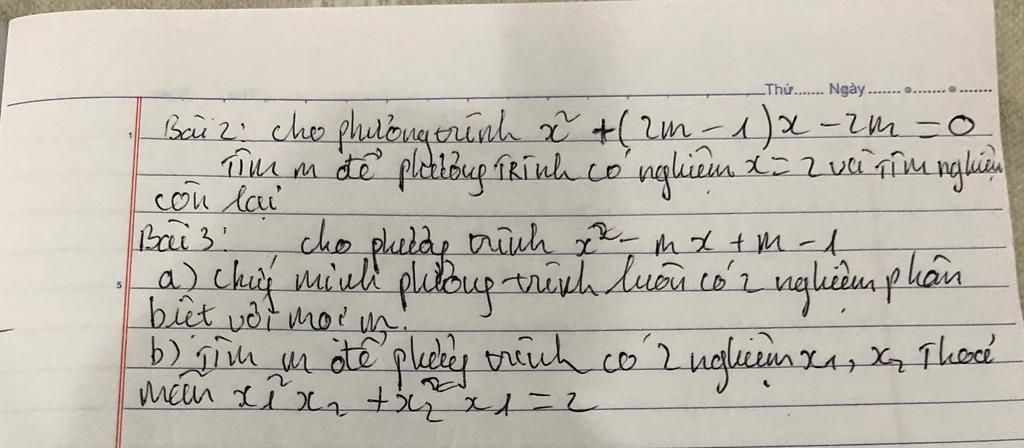 Thứ....... Ngày ...............
Bài 2: cho phương trình x² + (2m - 1)x - 2m = 0
Tìm m để phương TRình có nghiệm x = 2 và Tìm nghiệm
còn lại
Bài 3: cho phương trình x² - mx + m - 1
5
a) chứng minh phương trình luôn có 2 nghiệm phân
biệt với mọi m.
b) Tìm m để phương trình có 2 nghiệm x₁, x₂ Thoả
mãn x₁²x₂ + x₂²x₁ = 2